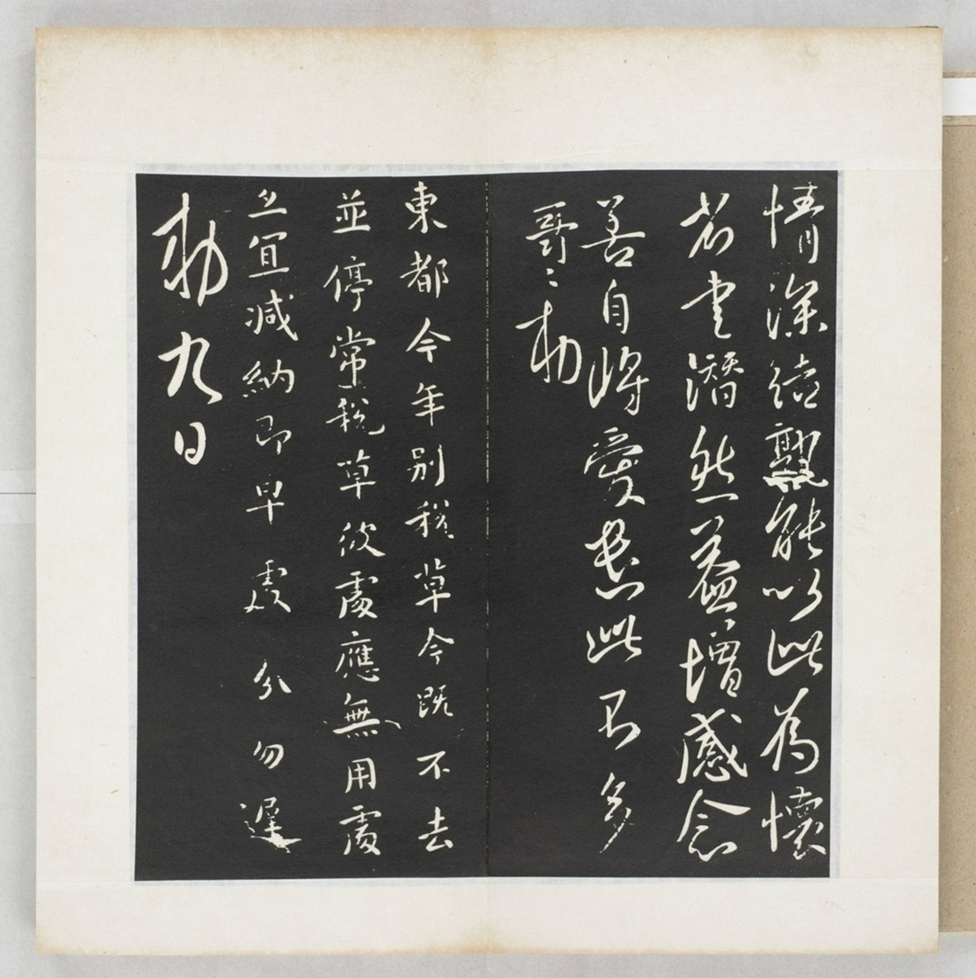 情深結孰能以此為懷
省書潛然益增感念
善自將愛此不多
哥〻敕
東都今年別稅草今既不去
並停常稅草彼處應無用處
亦宜減納即早處分勿遲
敕九日